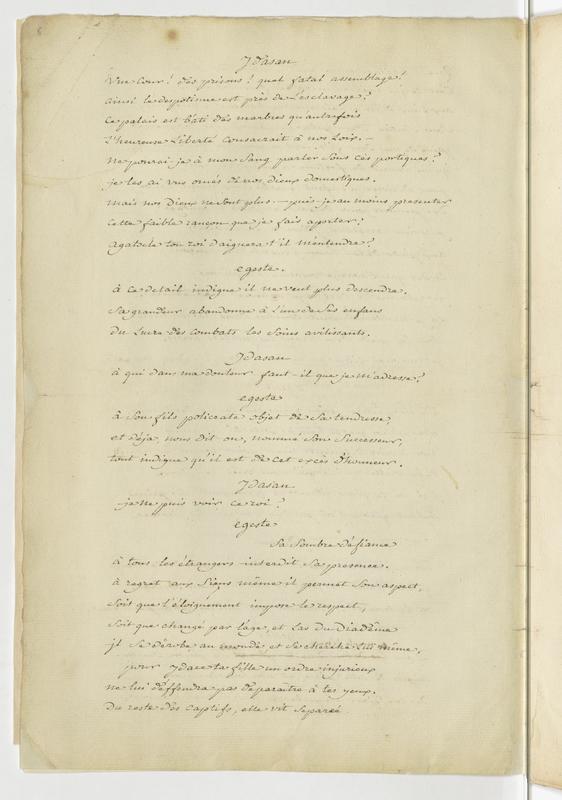 Ydasan
Une Cour! des prisons! quel fatal assemblage!
ainsi le despotisme est près de L'esclavage?
Ce palais est bâti des marbres qu'autrefois
L'heureuse Liberté consacrait à nos Loix. —
ne pourai-je à mon sang parler sous ces portiques?
je les ai vus ornés de nos dieux domestiques.
mais nos Dieux ne sont plus. — puis-je au moins presenter
cette faible rançon que je fais aporter?
agatocle ton roi daignera t'il m'entendre?
egeste.
à ce detail indigne il ne veut plus descendre.
sa grandeur abandonne à l'un de ses enfans
du Lucre des combats les soins avilissants.
Ydasan
à qui dans ma douleur faut-il que je m'adresse?
egeste
à son fils policrate objet de sa tendresse,
et déja, nous dit on, nommé son successeur,
tout indigne qu'il est de cet excès d'honneur.
Ydasan
je ne puis voir ce roi?
egeste
sa sombre défiance
à tous les étrangers interdit sa presence.
à regret aux siens même il permet son aspect,
soit que l'éloignement impose le respect,
soit que changé par l'age, et Las du Diadême
jl se dérobe au monde, et se cherche Lui même.
pour ydace ta fille un ordre injurieux
ne lui déffendra pas de paraître à tes yeux.
Du reste des captifs, elle vit separée